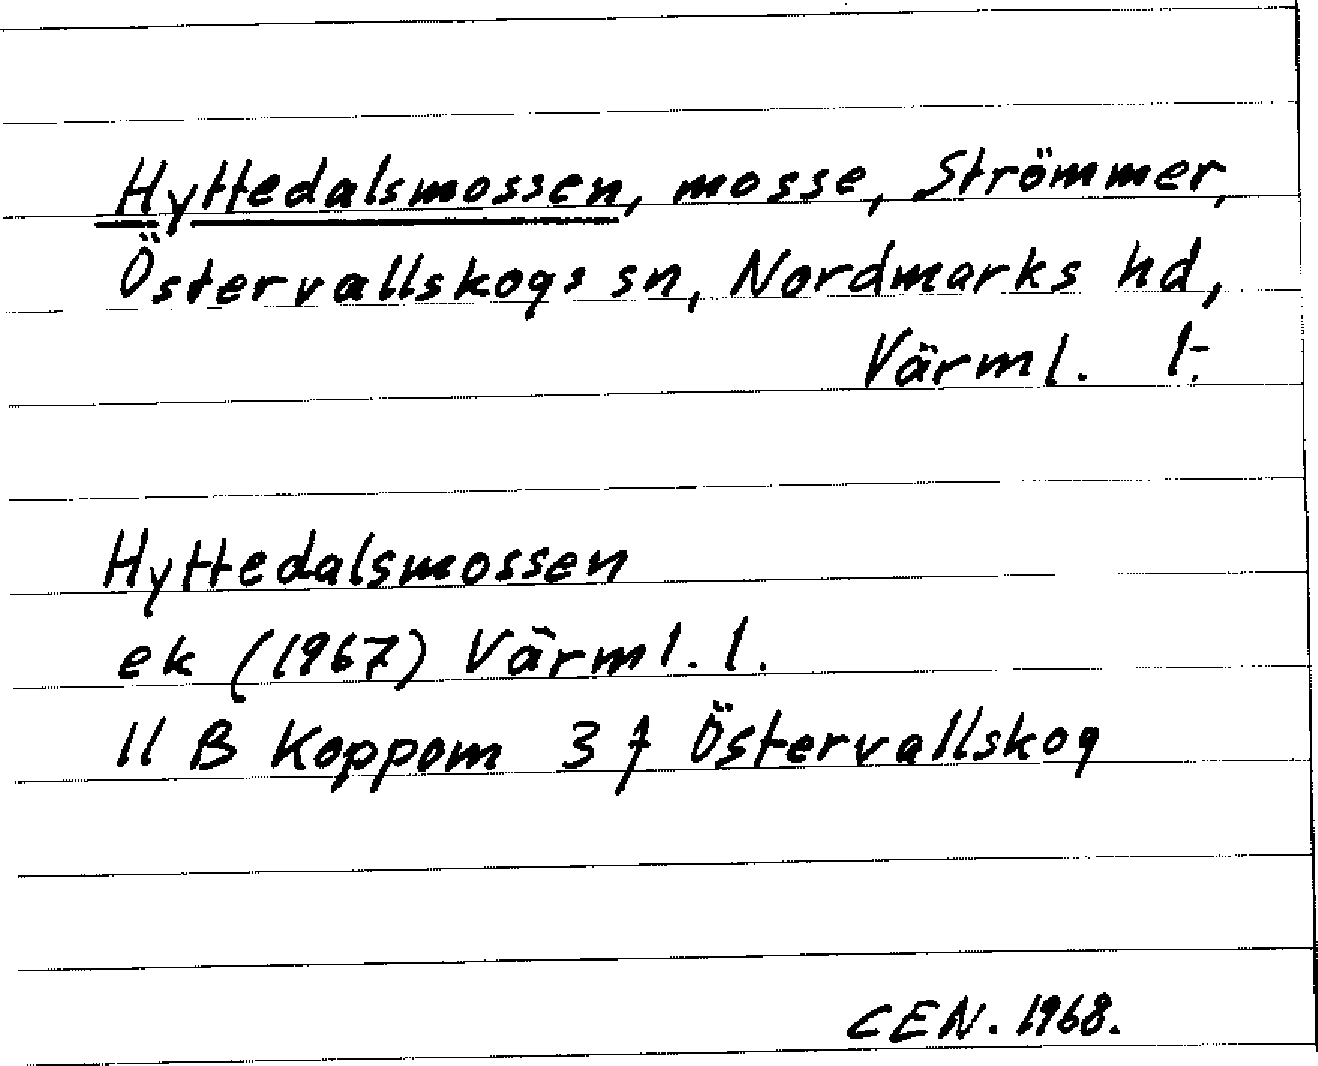 Hyttedalsmossen, mosse, Strömmer,
Östervallskogs sn, Nordmarks hd,
Värml. l:
Hyttedalsmossen
ek (1967) Värml. l.
11 B Koppom 3 f Östervallskog
CEN. 1968.